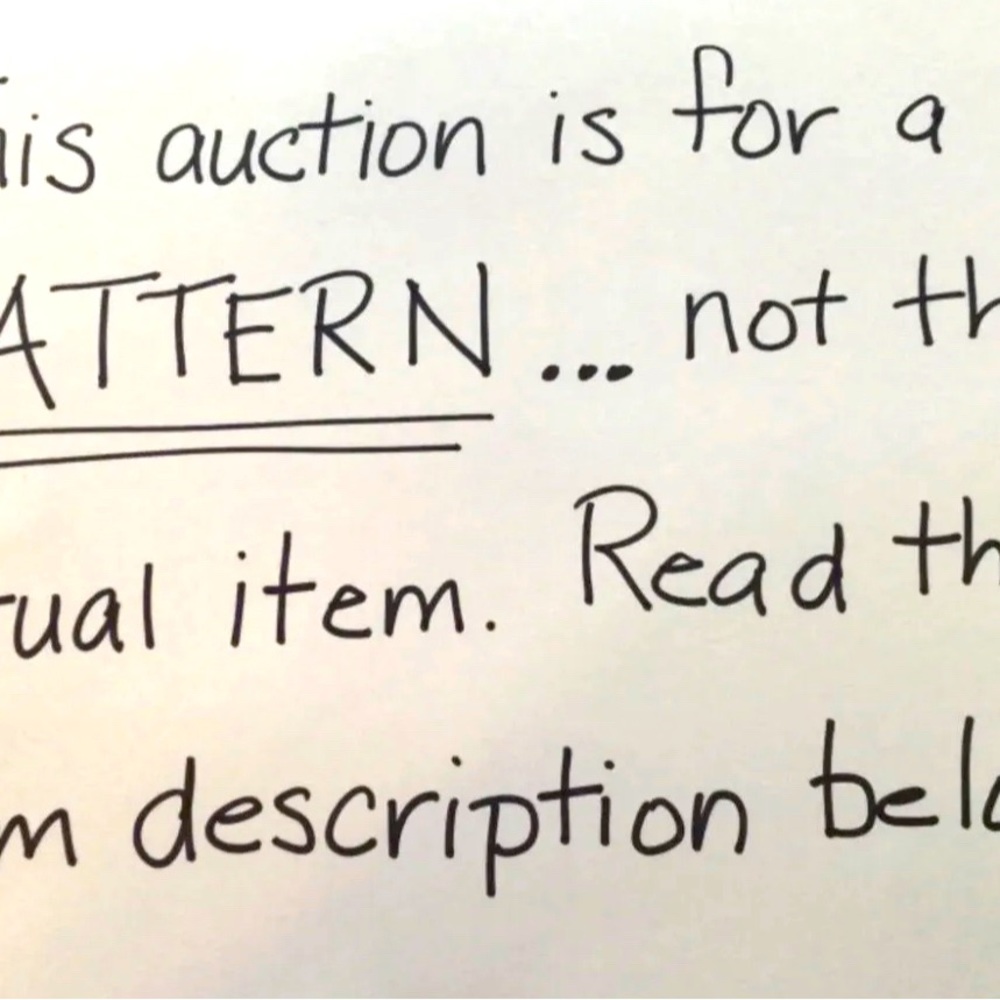 his auction is for a
ATTERN... not th
tual item. Read th
m description belo